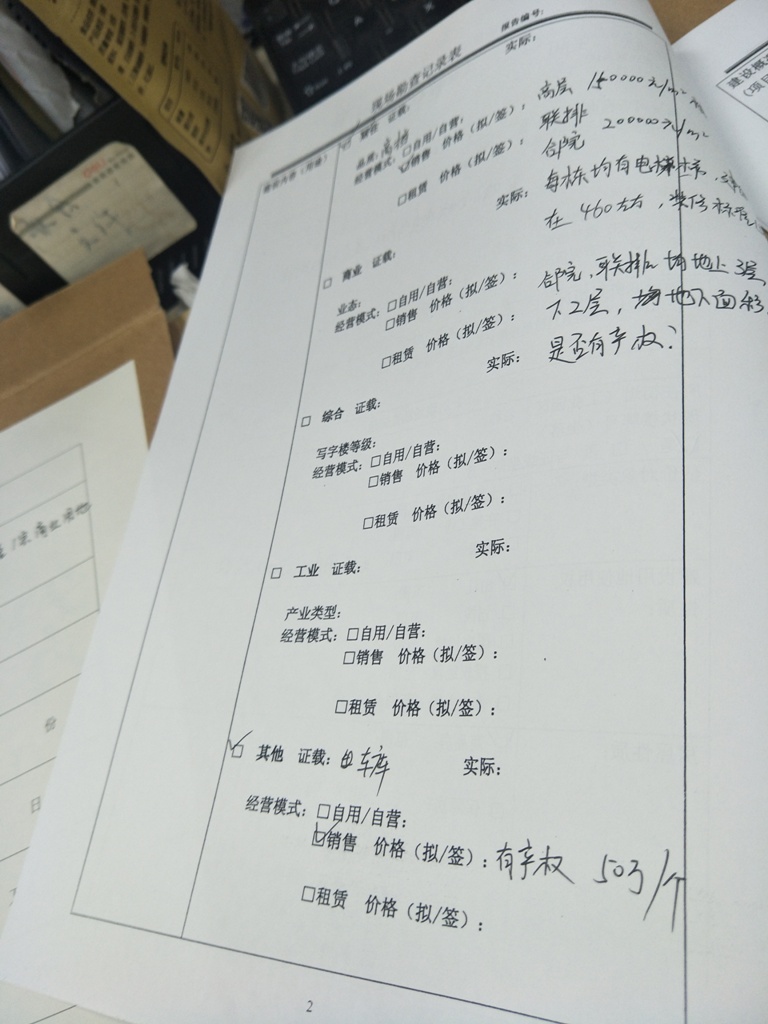 报告编号：
现场勘查记录表
建设内容（用途）
☑ 住宅 证载： 实际：
品质：高档
经营模式：□自用/自营：
☑销售 价格（拟/签）：高层 150000元/m²
联排
合院 200000元/m²
□租赁 价格（拟/签）：每栋均有电梯
在 460左右，
□ 商业 证载： 实际：
业态：
经营模式：□自用/自营：
□销售 价格（拟/签）：合院，联排均地上3层
□租赁 价格（拟/签）：下2层，地下面积
是否有产权？
□ 综合 证载： 实际：
写字楼等级：
经营模式：□自用/自营：
□销售 价格（拟/签）：
□租赁 价格（拟/签）：
□ 工业 证载： 实际：
产业类型：
经营模式：□自用/自营：
□销售 价格（拟/签）：
□租赁 价格（拟/签）：
☑ 其他 证载：车库 实际：
经营模式：□自用/自营：
☑销售 价格（拟/签）：有产权 50万/个
□租赁 价格（拟/签）：
2
份
日